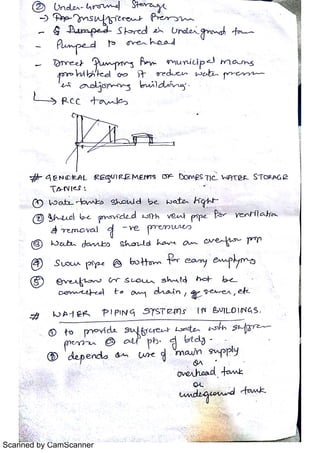 ② Under Ground Storage
→ Insufficient Pressure
- Stored in Underground tank
- Pumped to overhead
- Direct Pumping from municipal mains
prohibited as it reduces water pressure
in adjoining building.
→ RCC tanks
# GENERAL REQUIREMENTS OF DOMESTIC WATER STORAGE
TANKS:
① Water-tanks should be water tight
② Should be provided with vent pipe for ventilation
& removal of -ve pressures
③ Water tanks should have an overflow pipe
④ Scour pipe @ bottom for easy emptying
⑤ Overflow or scour should not be
connected to any drain, sewer, etc
# WATER PIPING SYSTEMS IN BUILDINGS.
① to provide sufficient water with
pressure @ all pts. of bldg.
② depends on use of main supply
or
overhead tank
or
underground tank
Scanned by CamScanner